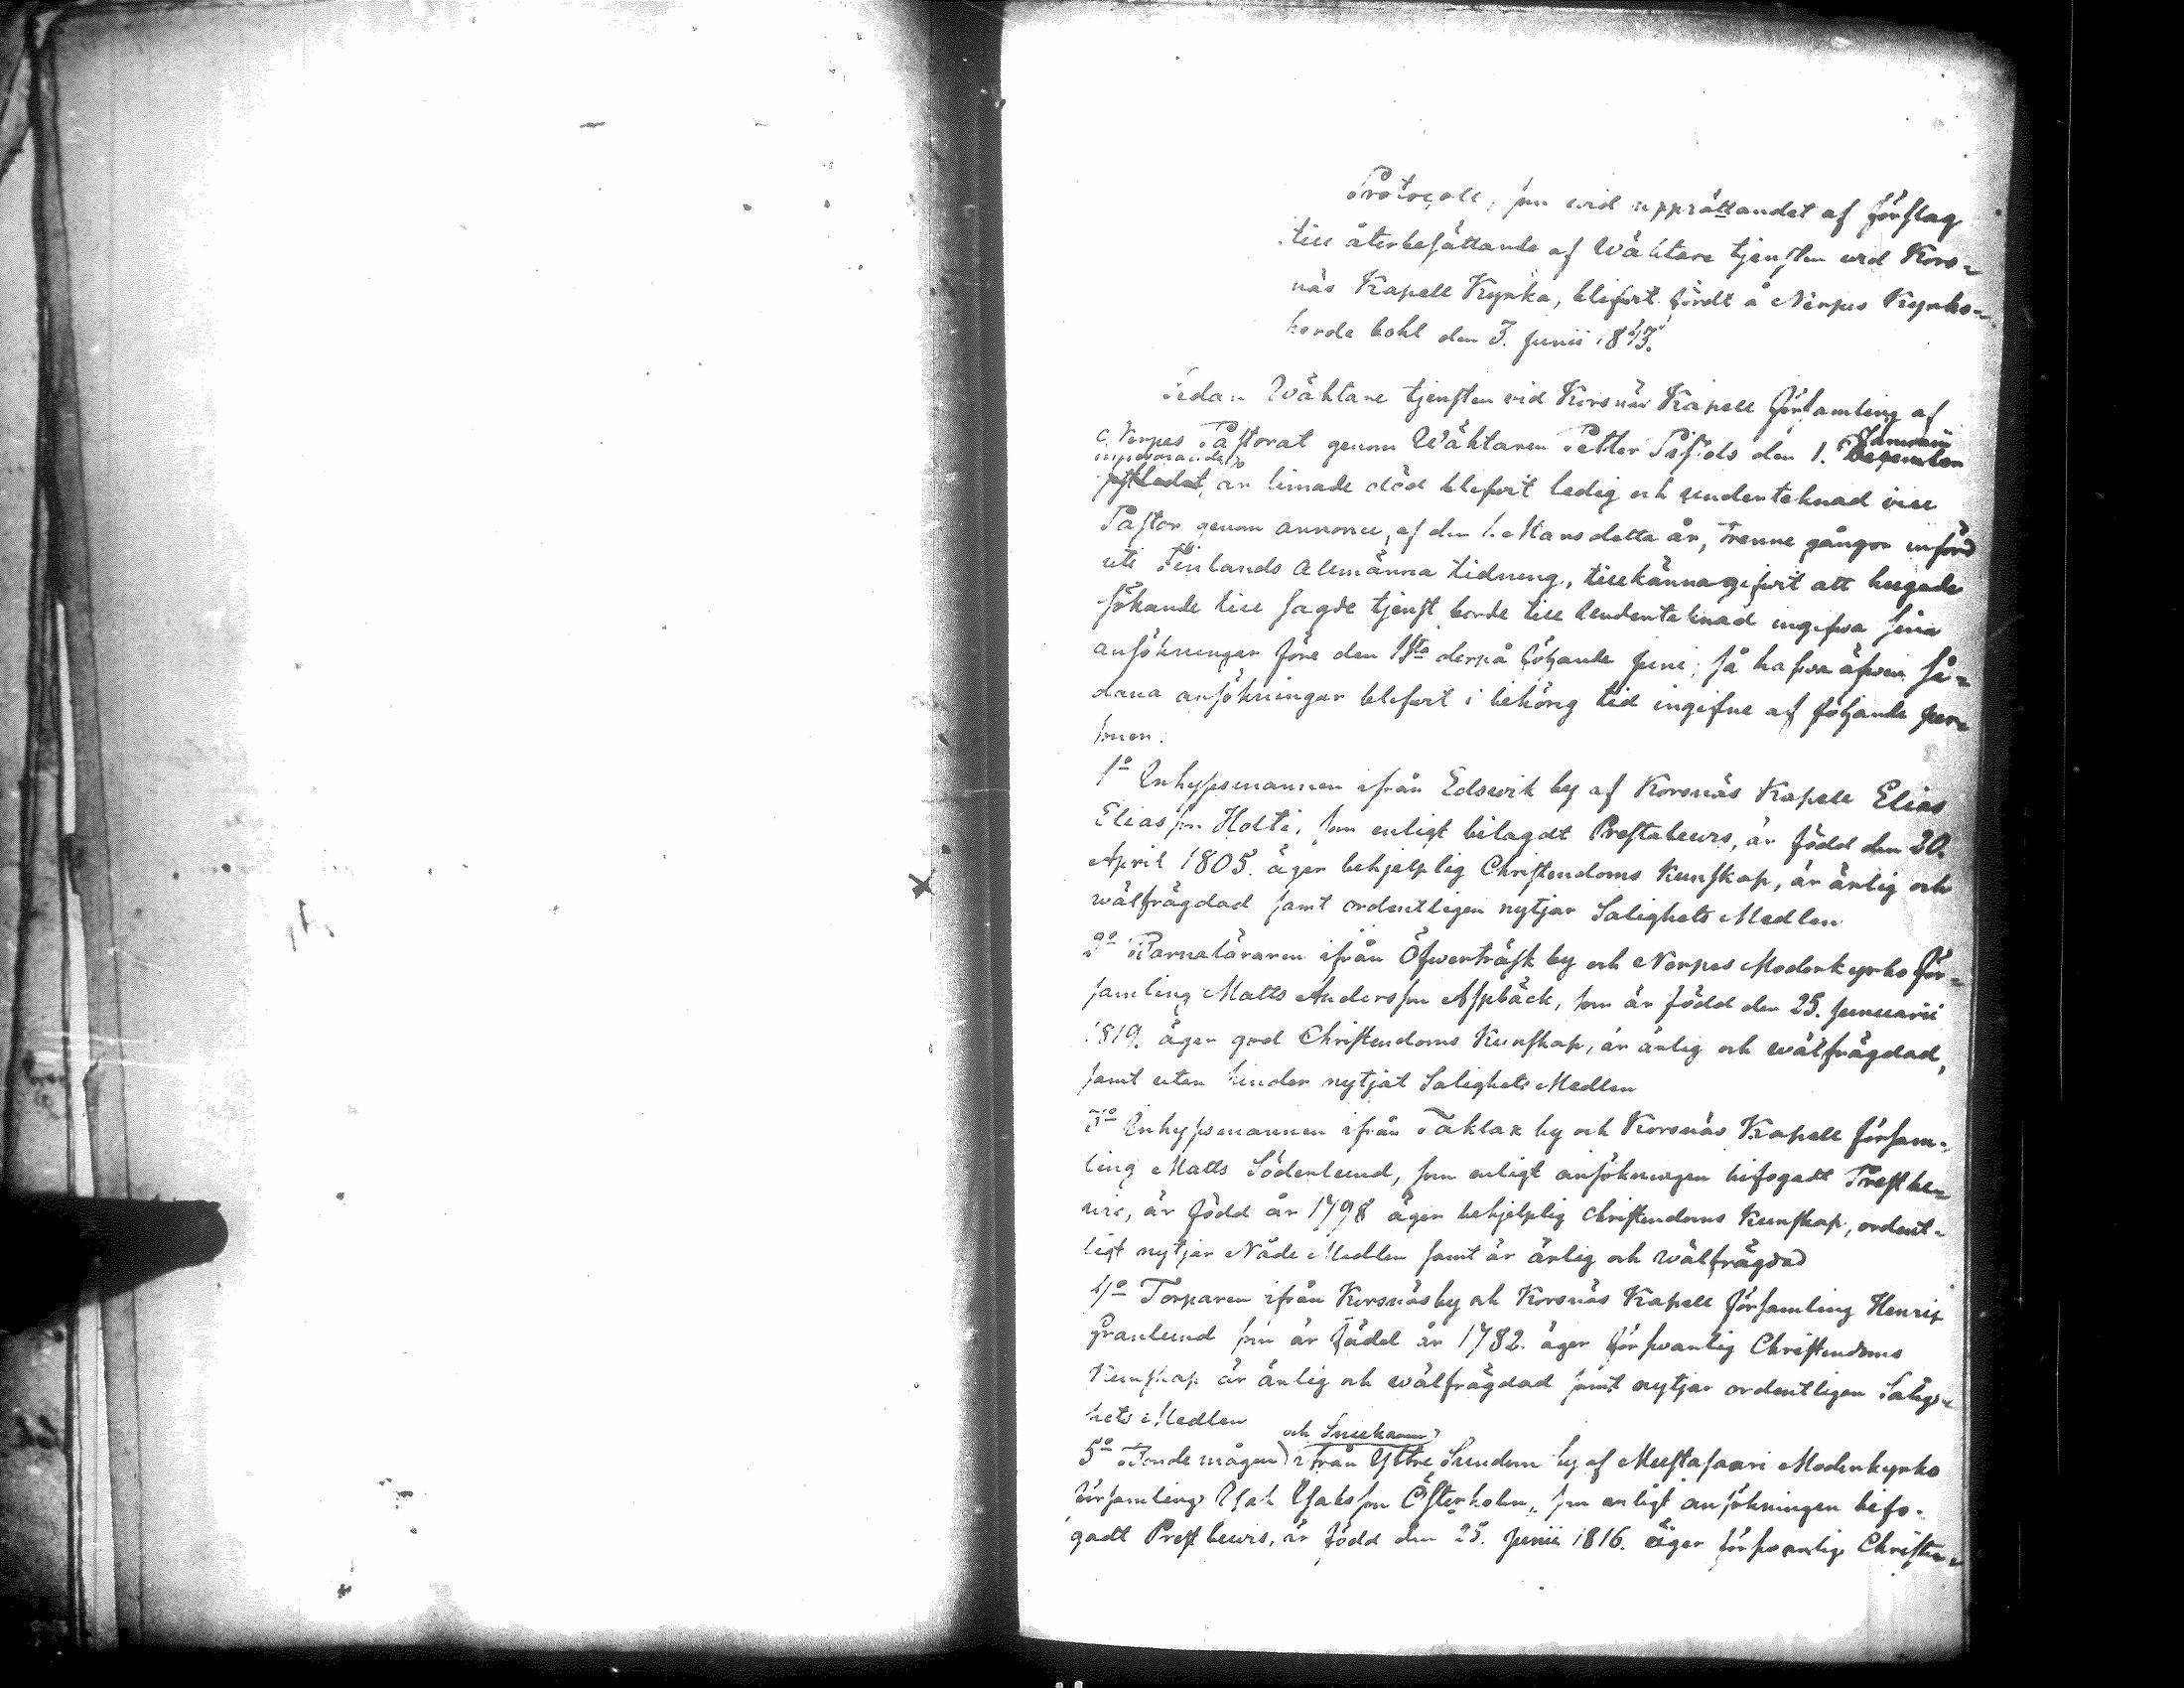 Protocoll, som wid upprättandet af förslag
till återbesättande af Wäktare tjensten wid Kors-
näs Kapell Kyrka, blifwit fördt å Nerpes Kyrko-
herde bohl den 3. Junii 1843.
Sedan Wäktare tjensten wid Korsnäs Kapell Församling af
Nerpes Pastorat genom Wäktaren Petter den 1. Januarii
innewarande år timade död blifwit ledig och undertecknad vice
Pastor genom annonce, af den 1. Mars detta år, trenne gånger införd
uti Finlands Allmänna tidning, tillkännagifwit att hugade
sökande till sagde tjenst borde till undertecknad ingifwa sina
ansökningar före den 1sta derpå följande Juni; så hafwa äfwen så-
dana ansökningar blifwit i behörig tid ingifne af följande per-
soner:
1o Inhysesmannen ifrån Edswik by af Korsnäs Kapell Elias
Eliasson Holti, som enligt bilagdt Prestabewis, är född den 20.
April 1805. äger behjelplig Christendoms Kunskap, är ärlig och
wälfrägdad samt ordentligen nytjar Salighets Medlen
2o Barnaläraren ifrån Öfwerträsk by och Nerpes Moderkyrko För-
samling Matts Andersson Aspbäck, som är född den 25. Januarii
1819. äger god Christendoms Kunskap, är ärlig och wälfrägdad,
samt utan hinder nytjat Salighets Medlen
3o Inhysesmannen ifrån Taklax by och Korsnäs Kapell försam-
ling Matts Söderlund, som enligt ansökningen bifogadt Prestbe-
wis, är född år 1798 äger behjelplig Christendoms Kunskap, ordent-
ligt nytjar Nåde Medlen samt är ärlig och wälfrägdad
4o Torparen ifrån Korsnäsby och Korsnäs Kapell församling Henric
Granlund som är född år 1782. äger förswarlig Christendoms
Kunskap är ärlig och wälfrägdad samt nytjar ordentligen Salig-
hets Medlen
och Snickaren
5o Bondemågen ifrån Yttre Sundom by af Mustasaari Moderkyrko
församling Isak Isaksson Österholm, som enligt ansökningen bifo-
gadt Prestbewis, är född den 25. Junii 1816. äger förswarlig Christen-